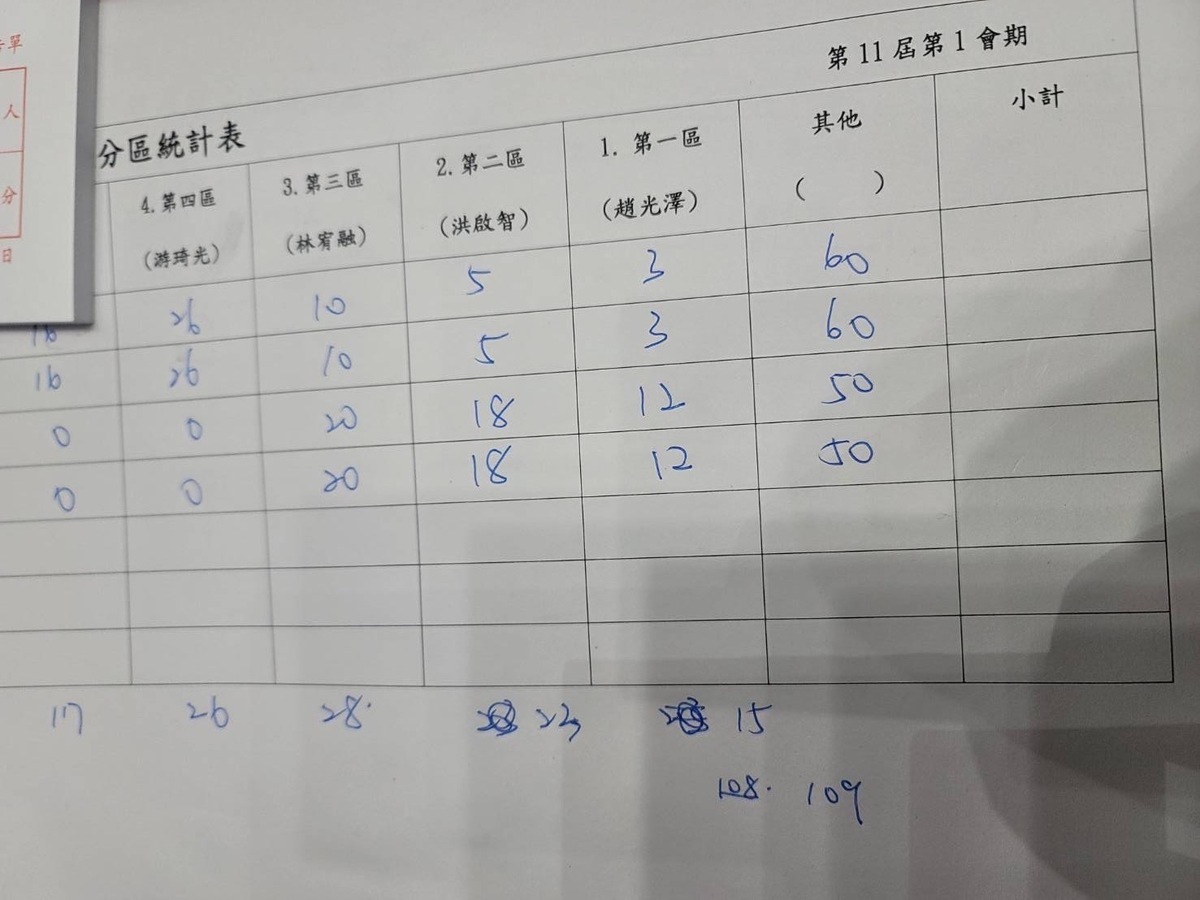 單
人
分
日
第 11 屆第 1 會期
分區統計表
4.第四區 3.第三區 2.第二區 1. 第一區 其他 小計
(游琦光) (林宥融) (洪啟智) (趙光澤) ( )
16 26 10 5 3 60
16 26 10 5 3 60
0 0 20 18 12 50
0 0 20 18 12 50
17 26 28. 23 15
108. 109